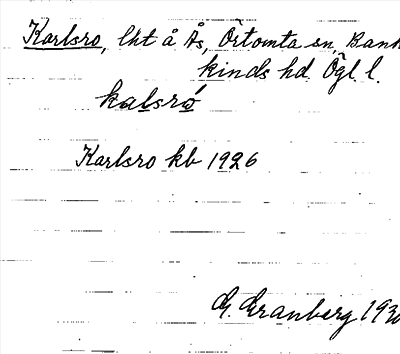 Karlsro, lht å Ås, Örtomta sn, Bank
kinds hd. Ögl l.
kalsró
Karlsro kb 1926
G. Granberg 193